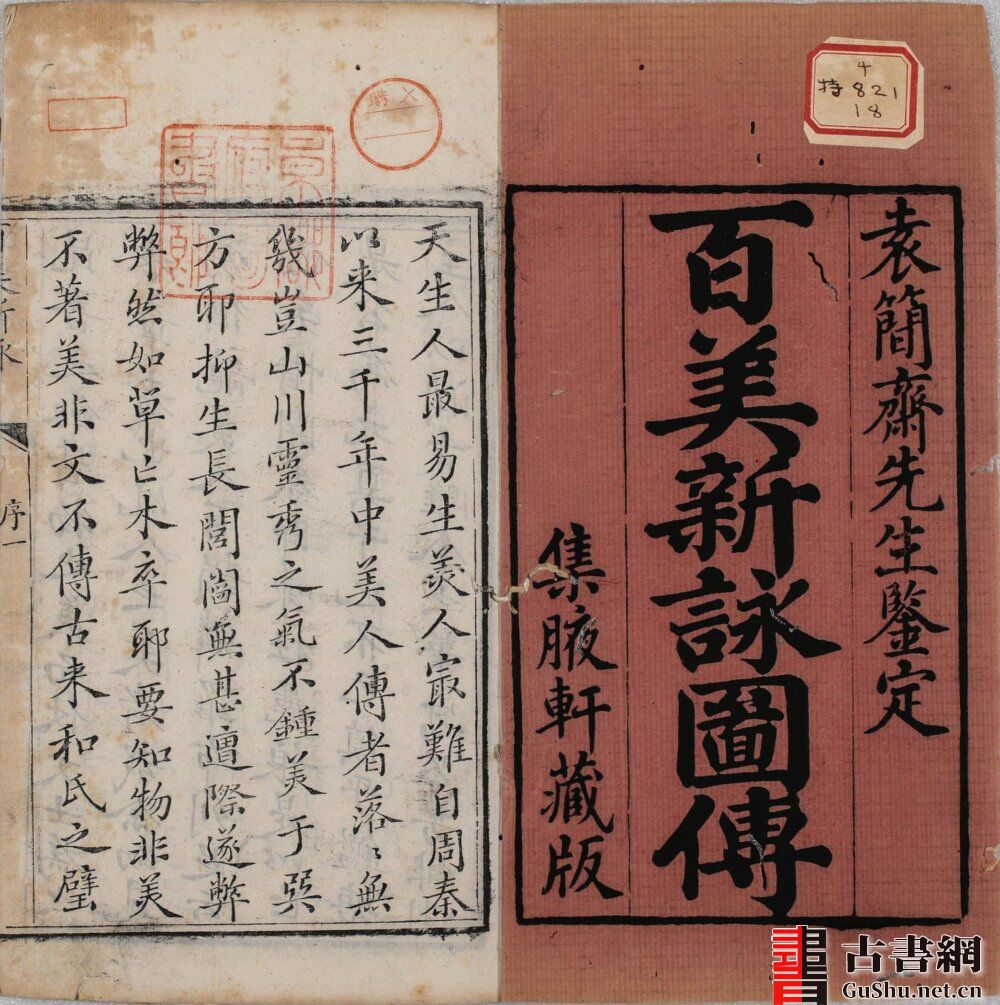 袁簡齋先生鑒定
百美新詠圖傳
集腋軒藏版
天生人最易生美人寂難自周秦
以来三千年中美人傳者落〻無
幾豈山川靈秀之氣不鍾美于巽
方耶抑生長閭閻無甚遭際遂弊
弊然如草亡木卒耶要知物非美
不著美非文不傳古来和氏之璧
序一
4
特821
18
購入
古書網
GuShu.net.cn